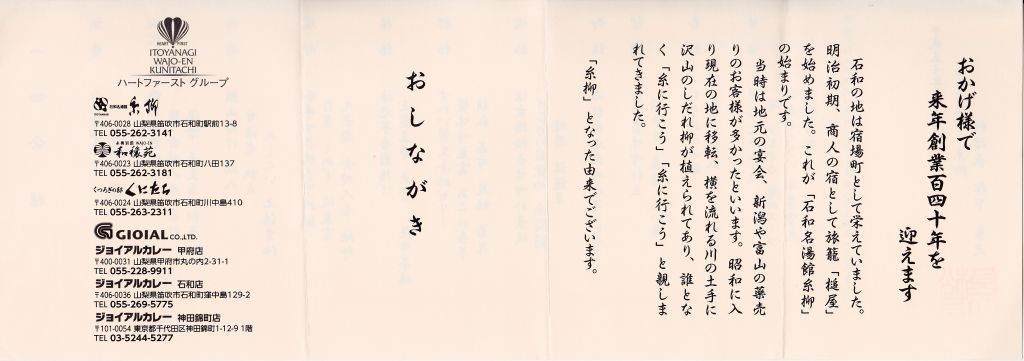 おかげ様で
来年創業百四十年を
迎えます
石和の地は宿場町として栄えていました。
明治初期、商人の宿として旅籠「槌屋」
を始めました。これが「石和名湯館糸柳」
の始まりです。
当時は地元の宴会、新潟や富山の薬売
りのお客様が多かったといいます。昭和に入
り現在の地に移転、横を流れる川の土手に
沢山のしだれ柳が植えられてあり、誰とな
く「糸に行こう」「糸に行こう」と親しま
れてきました。
「糸柳」となった由来でございます。
おしながき
HEART FIRST
ITOYANAGI
WAJO-EN
KUNITACHI
ハートファースト グループ
石和名湯館 糸柳
〒406-0028 山梨県笛吹市石和町駅前13-8
TEL 055-262-3141
和穣苑
〒406-0023 山梨県笛吹市石和町八田137
TEL 055-262-3181
くつろぎの邸 くにたち
〒406-0024 山梨県笛吹市石和町川中島410
TEL 055-263-2311
GIOIAL CO.,LTD.
ジョイアルカレー 甲府店
〒400-0031 山梨県甲府市丸の内2-31-1
TEL 055-228-9911
ジョイアルカレー 石和店
〒406-0036 山梨県笛吹市石和町窪中島129-2
TEL 055-269-5775
ジョイアルカレー 神田錦町店
〒101-0054 東京都千代田区神田錦町1-12-9 1階
TEL 03-5244-5277